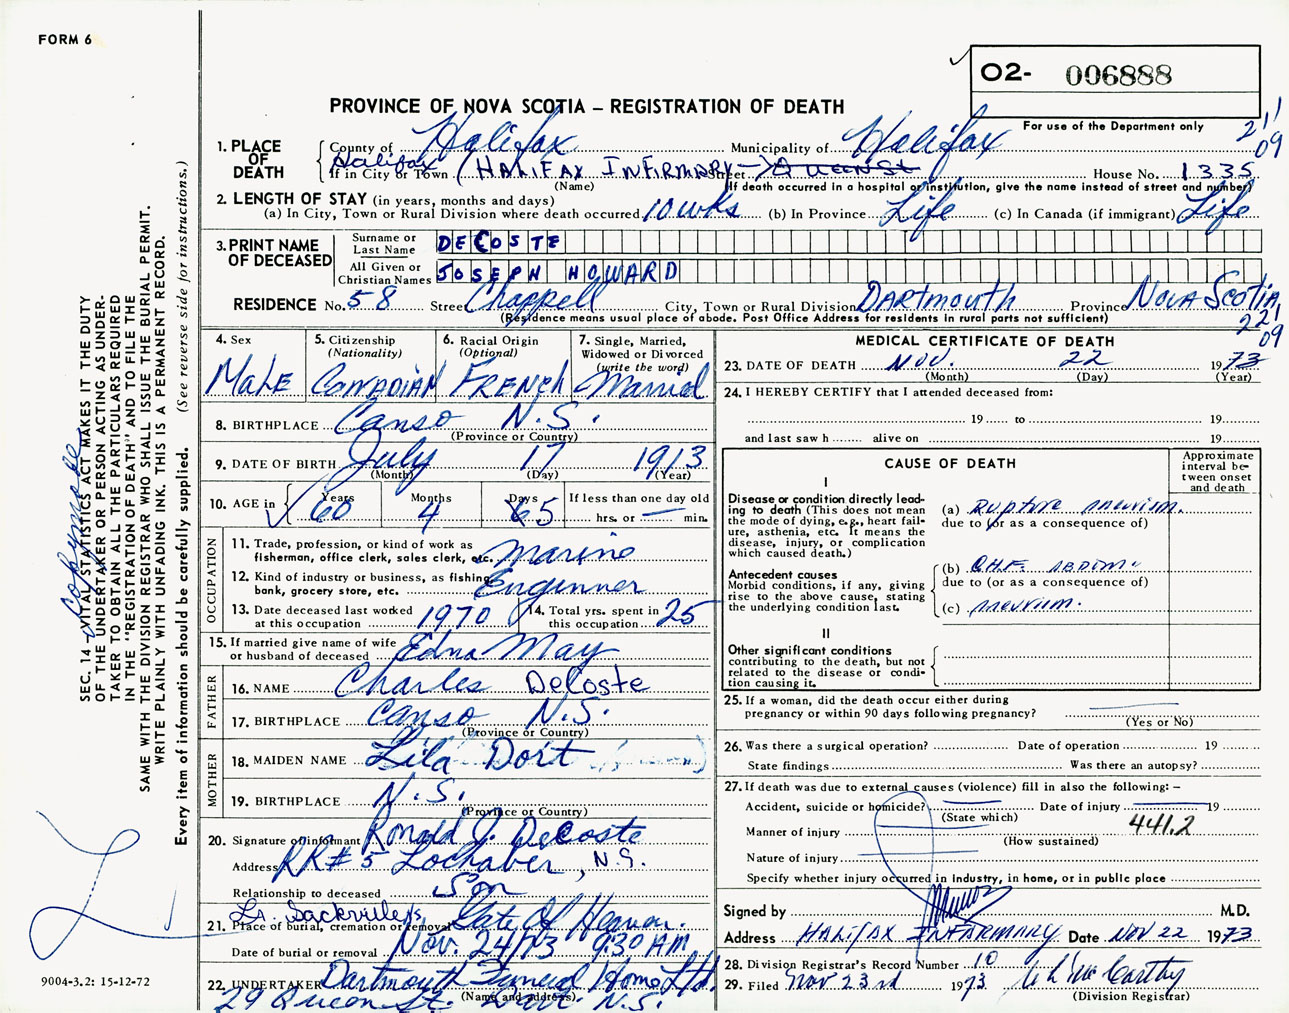 FORM 6
O2- 006888
PROVINCE OF NOVA SCOTIA – REGISTRATION OF DEATH
For use of the Department only
211
09
1. PLACE OF DEATH
County of Halifax Municipality of Halifax
Halifax
If in City or Town (HALIFAX INFIRMARY Street Queen St House No. 1335
(Name) (If death occurred in a hospital or institution, give the name instead of street and number)
2. LENGTH OF STAY (in years, months and days)
(a) In City, Town or Rural Division where death occurred 10 wks (b) In Province Life (c) In Canada (if immigrant) Life
3. PRINT NAME OF DECEASED
Surname or Last Name DECOSTE
All Given or Christian Names JOSEPH HOWARD
RESIDENCE No. 58 Street Chappell City, Town or Rural Division DARTMOUTH Province NOVA SCOTIA
(Residence means usual place of abode. Post Office Address for residents in rural parts not sufficient)
221
09
4. Sex
MALE
5. Citizenship (Nationality)
CANADIAN
6. Racial Origin (Optional)
FRENCH
7. Single, Married, Widowed or Divorced (write the word)
Married
8. BIRTHPLACE Canso N.S.
(Province or Country)
9. DATE OF BIRTH July 17 1913
(Month) (Day) (Year)
10. AGE in Years 60 Months 4 Days 5 If less than one day old
hrs. or — min.
OCCUPATION
11. Trade, profession, or kind of work as fisherman, office clerk, sales clerk, etc. Marine
12. Kind of industry or business, as fishing, bank, grocery store, etc. Enginner
13. Date deceased last worked at this occupation 1970
14. Total yrs. spent in this occupation 25
15. If married give name of wife or husband of deceased Edna May
FATHER
16. NAME Charles DeCoste
17. BIRTHPLACE Canso N.S.
(Province or Country)
MOTHER
18. MAIDEN NAME Lila Dort
19. BIRTHPLACE N.S.
(Province or Country)
20. Signature of informant Ronald J. DeCoste
Address RR# 5 Lochaber, N.S.
Relationship to deceased Son
Sackville
21. Place of burial, cremation or removal Gate Of Heaven.
Date of burial or removal Nov. 24/73 9:30 AM
22. UNDERTAKER Dartmouth Funeral Home Ltd.
(Name and address)
29 Queen St. Dart. N.S.
MEDICAL CERTIFICATE OF DEATH
23. DATE OF DEATH NOV. 22 1973
(Month) (Day) (Year)
24. I HEREBY CERTIFY that I attended deceased from:
19 to 19
and last saw h alive on 19
CAUSE OF DEATH
Approximate interval between onset and death
I
Disease or condition directly leading to death (This does not mean the mode of dying, e.g., heart failure, asthenia, etc. It means the disease, injury, or complication which caused death.)
(a) Ruptive aneurism.
due to (or as a consequence of)
Antecedent causes
Morbid conditions, if any, giving rise to the above cause, stating the underlying condition last.
(b) CHF. ABDOM.
due to (or as a consequence of)
(c) aneurism.
II
Other significant conditions contributing to the death, but not related to the disease or condition causing it.
25. If a woman, did the death occur either during pregnancy or within 90 days following pregnancy?
(Yes or No)
26. Was there a surgical operation? Date of operation 19
State findings Was there an autopsy?
27. If death was due to external causes (violence) fill in also the following: –
Accident, suicide or homicide? Date of injury 19
(State which)
441.2
Manner of injury
(How sustained)
Nature of injury
Specify whether injury occurred in industry, in home, or in public place
Signed by M.D.
Address HALIFAX INFIRMARY Date NOV 22 1973
28. Division Registrar's Record Number 10
29. Filed Nov 23rd 1973 McCarthy
(Division Registrar)
SEC. 14 – VITAL STATISTICS ACT MAKES IT THE DUTY
OF THE UNDERTAKER OR PERSON ACTING AS UNDER-
TAKER TO OBTAIN ALL THE PARTICULARS REQUIRED
IN THE "REGISTRATION OF DEATH" AND TO FILE THE
SAME WITH THE DIVISION REGISTRAR WHO SHALL ISSUE THE BURIAL PERMIT.
WRITE PLAINLY WITH UNFADING INK. THIS IS A PERMANENT RECORD.
Every item of information should be carefully supplied. (See reverse side for instructions.)
9004-3.2: 15-12-72